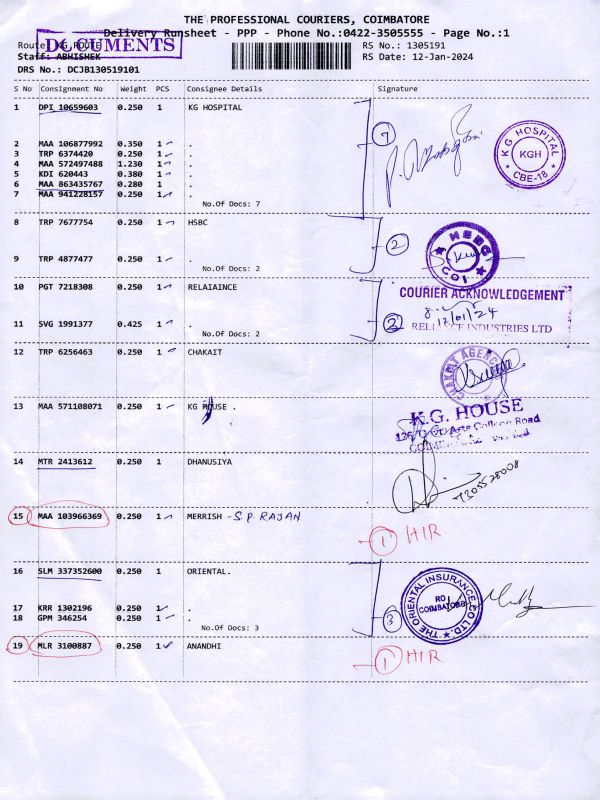 THE PROFESSIONAL COURIERS, COIMBATORE
Delivery Runsheet - PPP - Phone No.:0422-3505555 - Page No.:1
Route: KG ROUTE
DOCUMENTS
RS No.: 1305191
Staff: ABHISHEK
RS Date: 12-Jan-2024
DRS No.: DCJB130519101
S No Consignment No Weight PCS Consignee Details Signature
1 DPI 10659603 0.250 1 KG HOSPITAL
7
K G HOSPITAL
KGH
CBE-18
2 MAA 106877992 0.350 1 .
3 TRP 6374420 0.250 1 .
4 MAA 572497488 1.230 1 .
5 KDI 620443 0.380 1 .
6 MAA 863435767 0.280 1 .
7 MAA 941228157 0.250 1 .
No.Of Docs: 7
8 TRP 7677754 0.250 1 HSBC
2
HSBC
COI
9 TRP 4877477 0.250 1 .
No.Of Docs: 2
10 PGT 7218308 0.250 1 RELAIAINCE
COURIER ACKNOWLEDGEMENT
12/01/24
11 SVG 1991377 0.425 1 .
2
RELIANCE INDUSTRIES LTD
No.Of Docs: 2
12 TRP 6256463 0.250 1 CHAKAIT
13 MAA 571108071 0.250 1 KG HOUSE .
K.G. HOUSE
Arts College Road
14 MTR 2413612 0.250 1 DHANUSIYA
15 MAA 103966369 0.250 1 MERRISH - S.P. RAJAN
1 HIR
16 SLM 337352600 0.250 1 ORIENTAL.
THE ORIENTAL INSURANCE CO LTD.
RO
COIMBATORE
17 KRR 1302196 0.250 1 .
18 GPM 346254 0.250 1 .
3
No.Of Docs: 3
19 MLR 3100887 0.250 1 ANANDHI
1 HIR